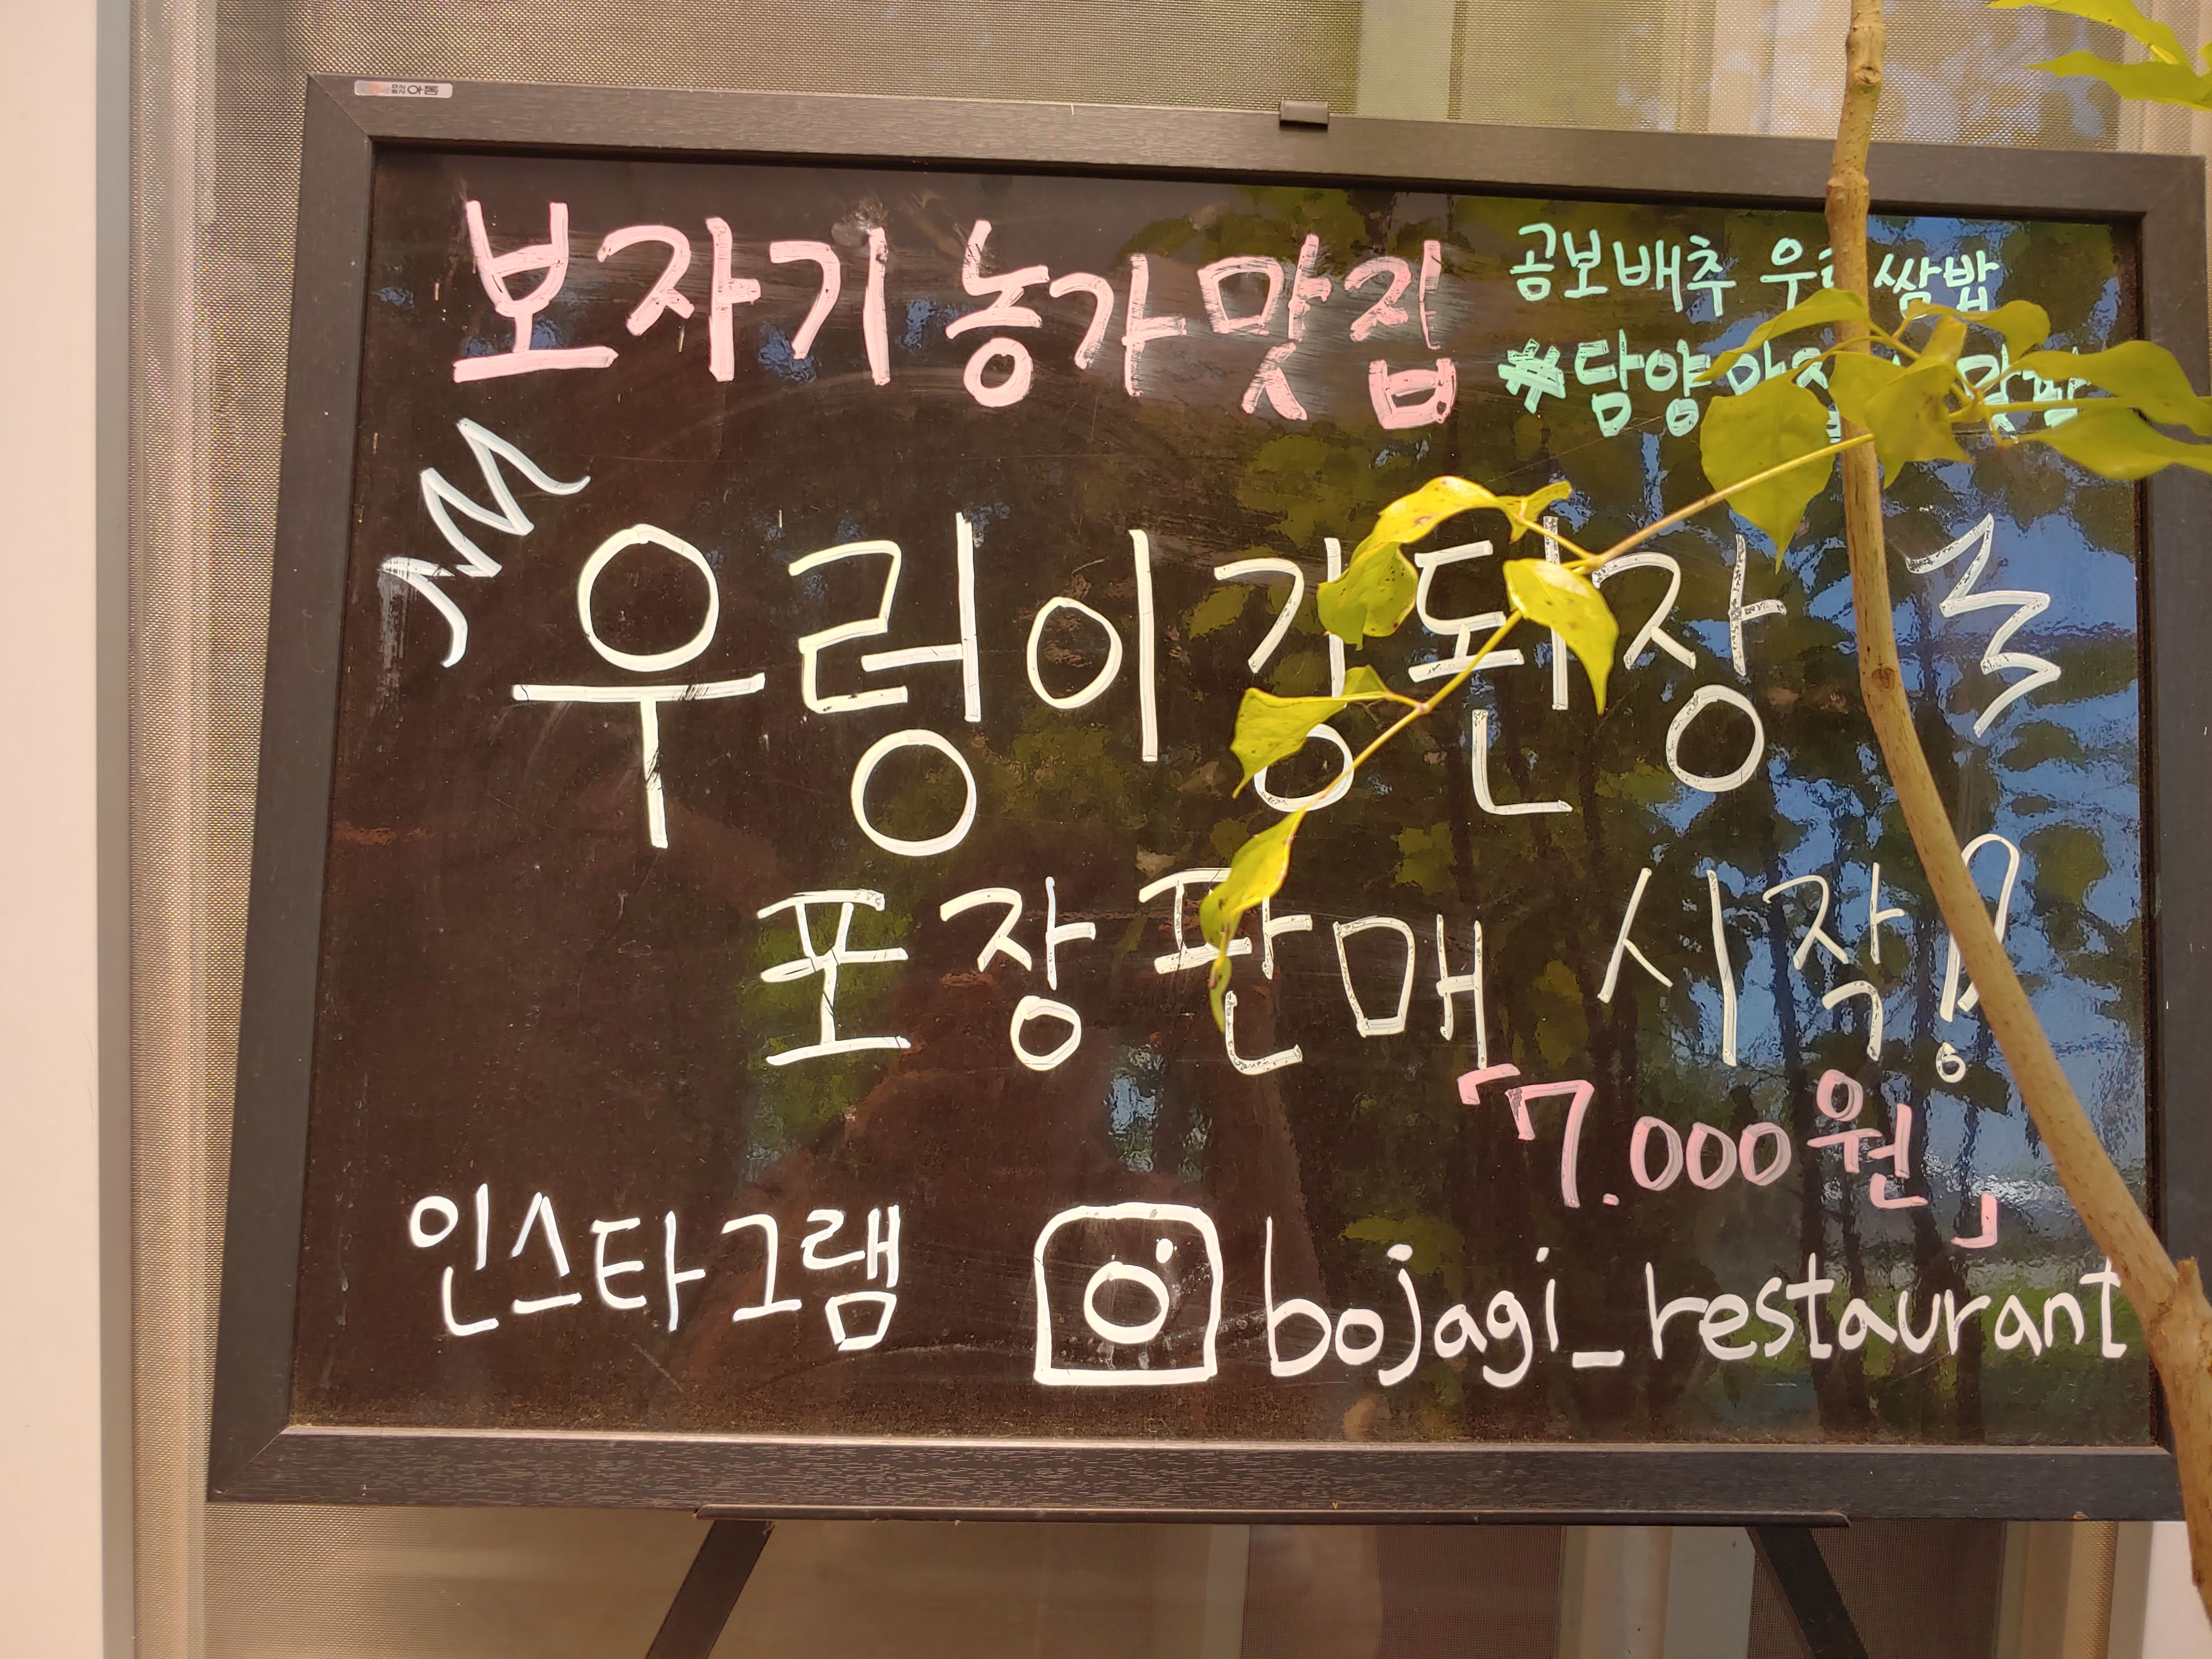 보자기 농가맛집
곰보배추 쌈밥
#담양
우렁이강된장
포장판매 시작!
「7.000원」
인스타그램 bojagi_restaurant